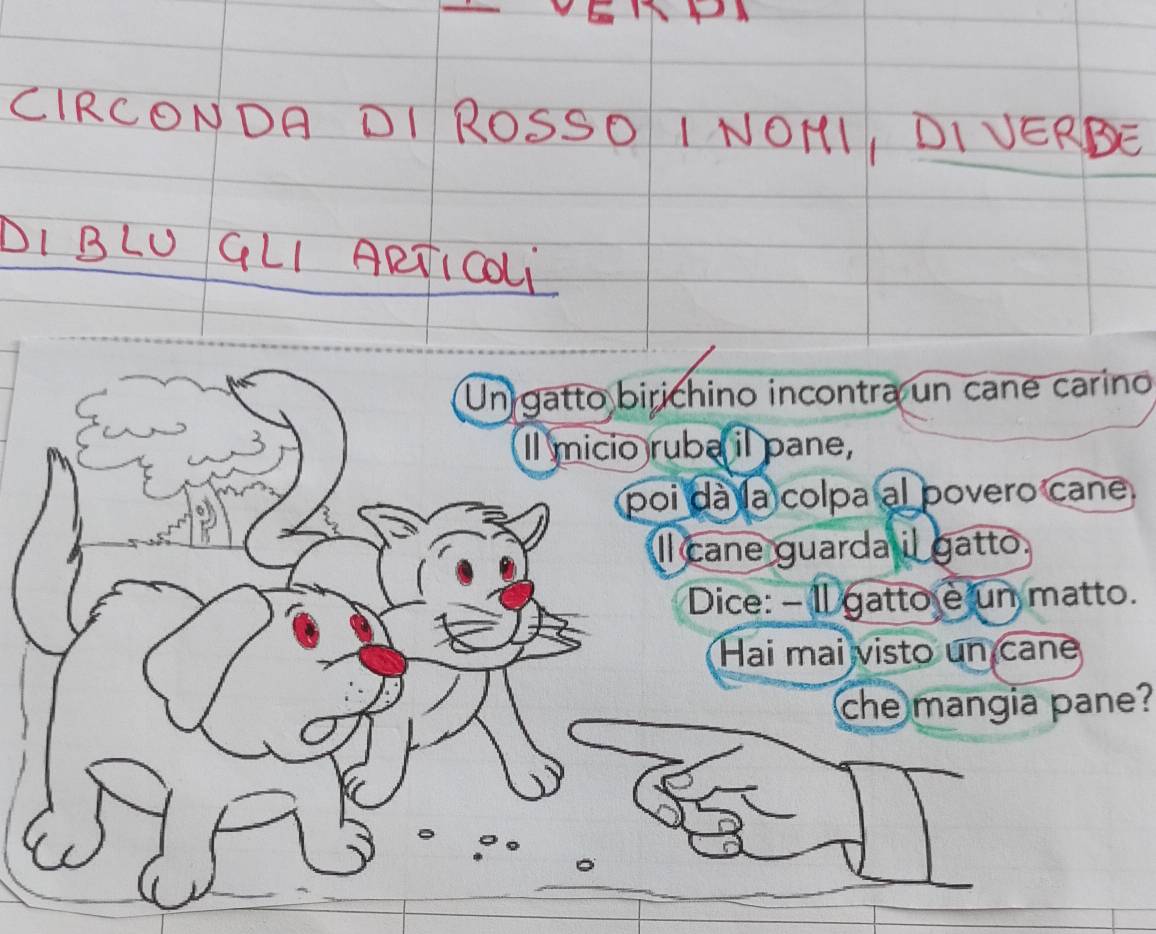 I VERBI
CIRCONDA DI ROSSO I NOMI, DI VERDE
DI BLU GLI ARTICOLI
Un gatto birichino incontra un cane carino
Il micio ruba il pane,
poi dà la colpa al povero cane.
Il cane guarda il gatto.
Dice: – Il gatto è un matto.
Hai mai visto un cane
che mangia pane?